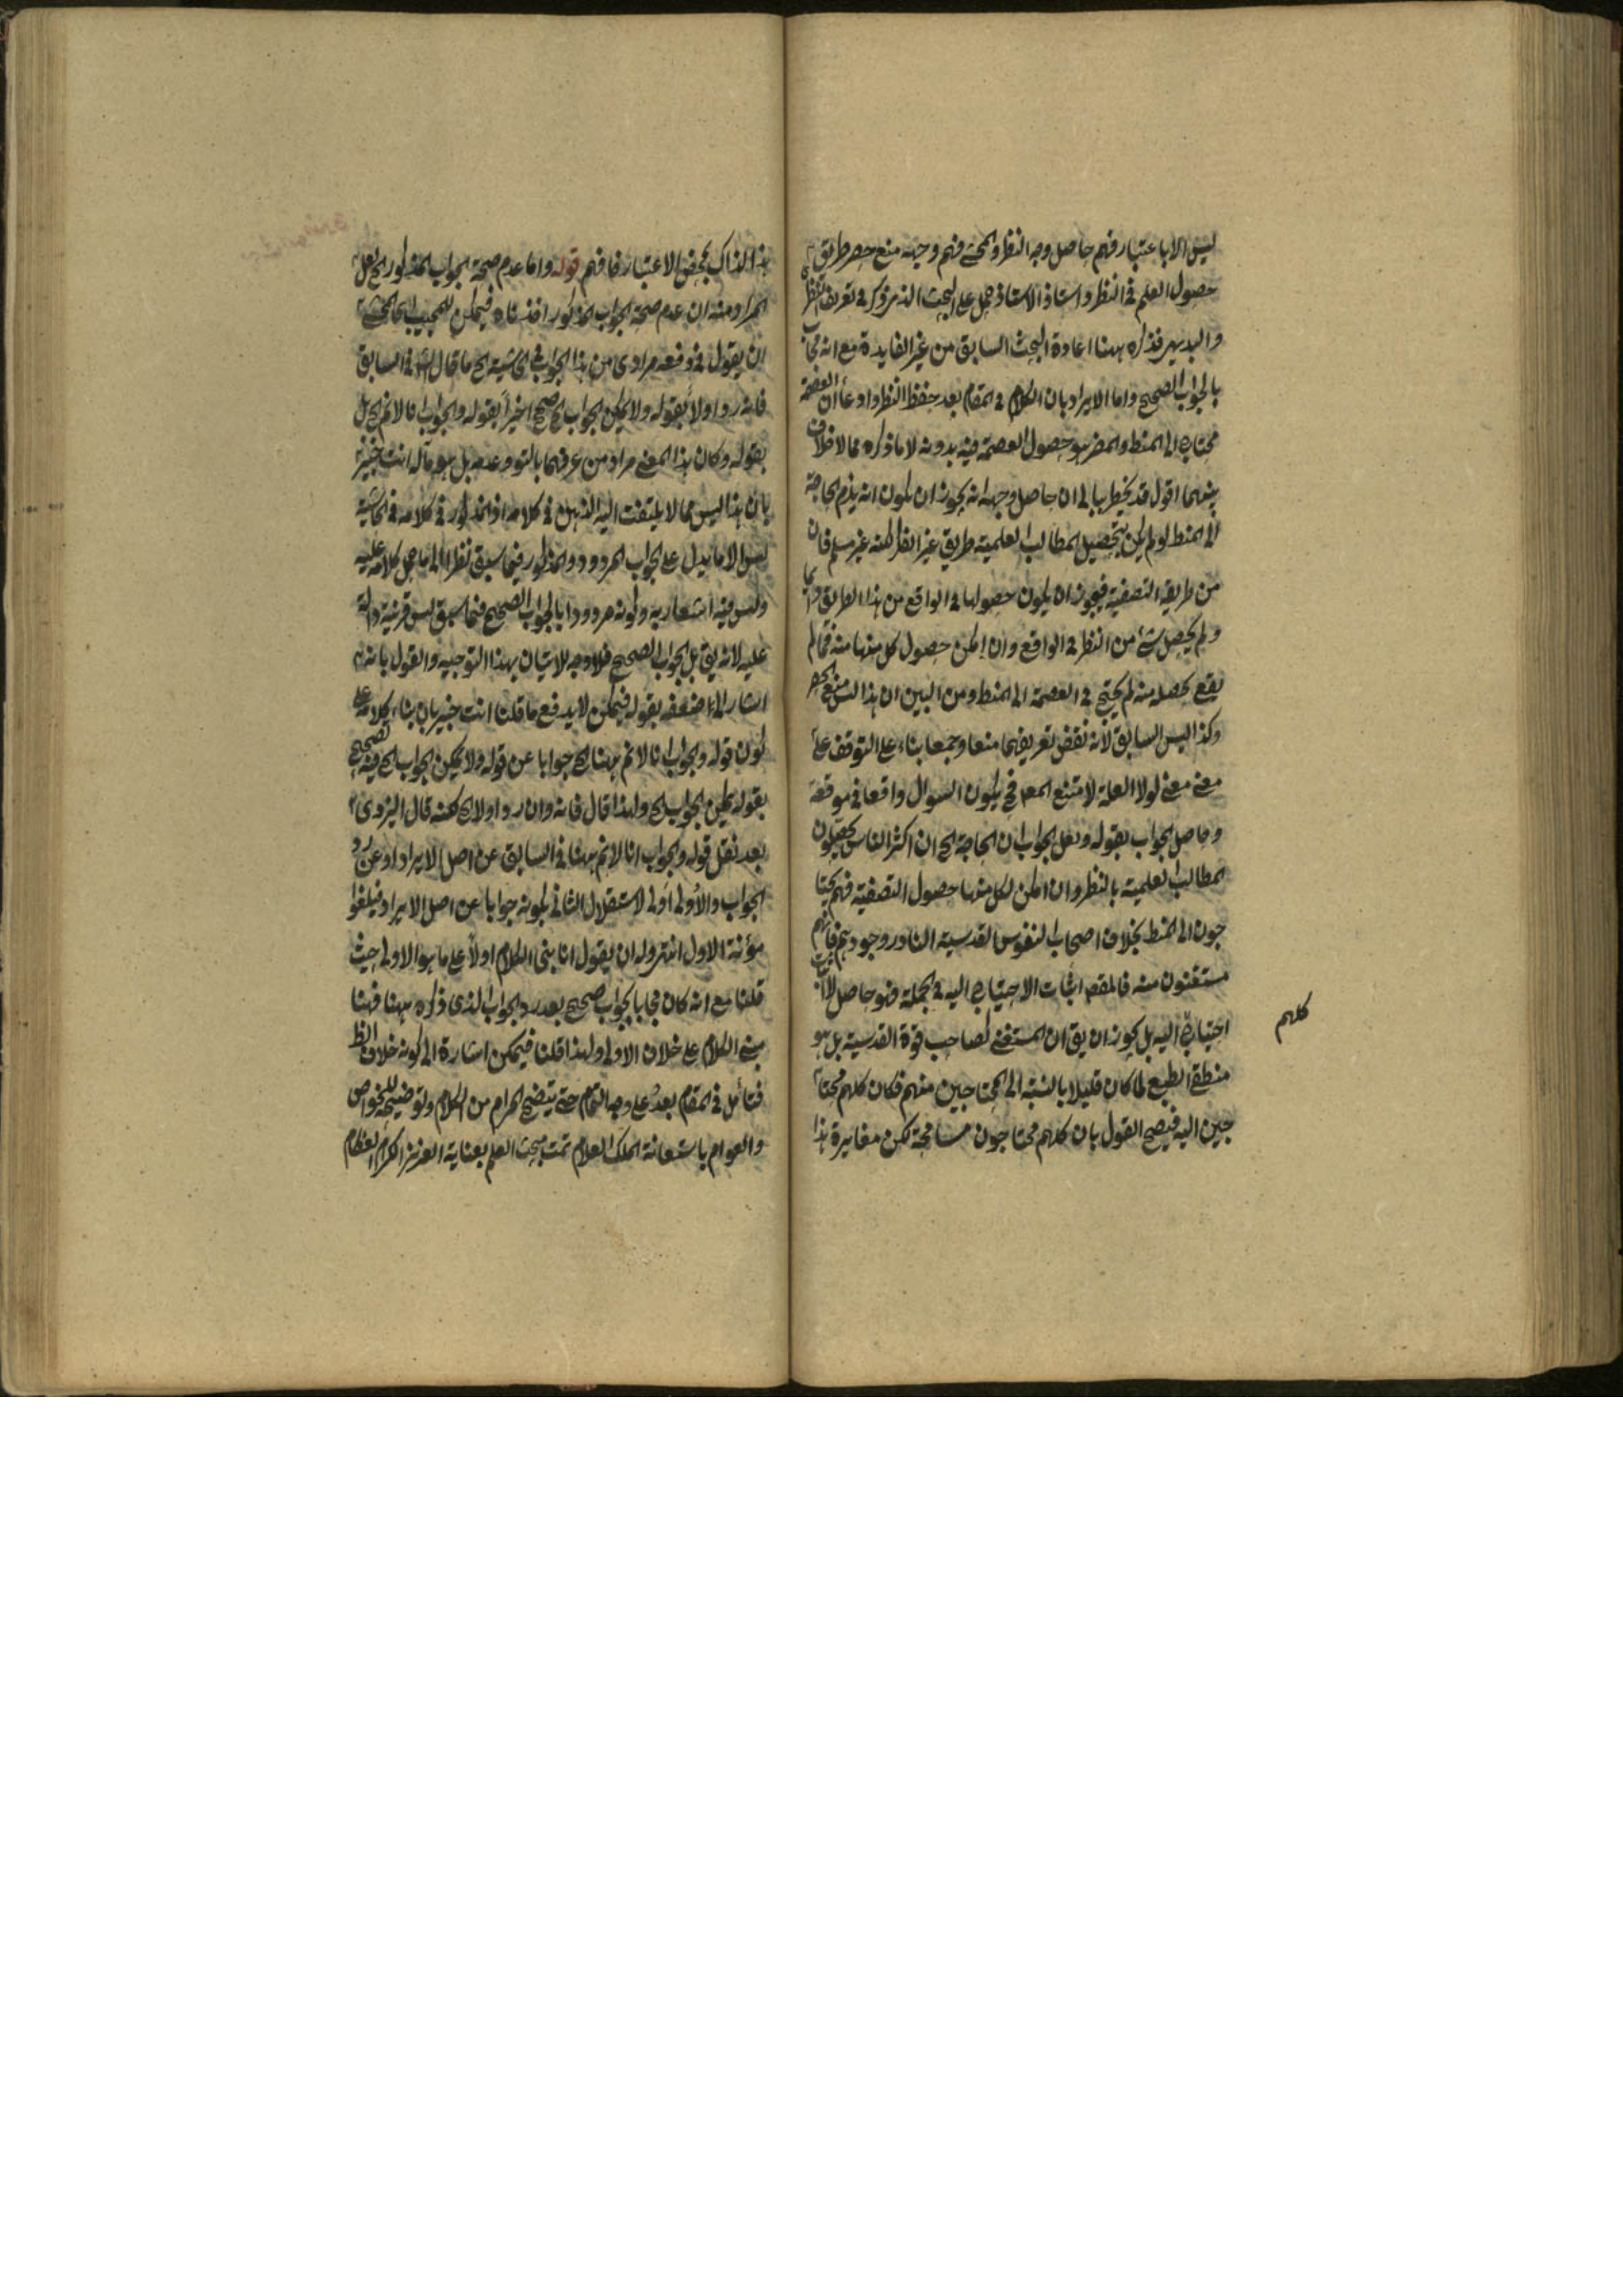 ليس الا باعتبار فهم حاصل وجه النظر والمحشى فهم وجهه منع حصر طريق
حصول العلم فى النظر واستاذ الاستاذ حمل على البحث الذى مر ذكره فى تعريف النظرى
والبديهى فذكره ههنا اعادة البحث السابق من غير الفايدة مع انه مجاب
بالجواب الصحيح واما الايراد بان الكلام فى المقام بعد حفظ النظر وادعاء ان العصمة
محتاج الى المنطق والمضر هو حصول العصمة فيه بدونه لا ما ذكره مما لا خلاف
بينهما اقول قد يخطر ببالى ان حاصل وجهه انه يجوز ان يكون انه يلزم الحاجة
الى المنطق لو لم يكن بتحصيل المطالب العلمية طريق غير النظر لكنه غير مسلم فان
من طريقه التصفية فيجوز ان يكون حصولها فى الواقع من هذا الطريق دايما
ولم يحصل شئ من النظر فى الواقع وان امكن حصول كل منها منه فما لم
يقع تحصله منه لم يحتج فى العصمة الى المنطق ومن البين ان هذا ليس منع الحصر
وكذا ليس السابق لانه نقض تعريفهما منعا وجمعا بناء على التوقف على
معنى لولا العلة لامتنع المع فح يكون السوال واقعا فى موقعه
وحاصل الجواب بقوله ولعل الجواب ان الحاجة الخ ان اكثر الناس يحصلون
المطالب العلمية بالنظر وان امكن لكل منها حصول التصفية فهم يحتا
جون الى المنطق بخلاف اصحاب النفوس القدسية النادر وجودهم فانهم
مستغنون منه فالمقصد اثبات الاحتياج اليه فى الجملة فهو حاصل لا اثبات
احتياج اليه بل يجوز ان يق ان المستغنى لصاحب قوة القدسية بل هو
كلهم
منطقى الطبع لما كان قليلا بالنسبة الى المحتاجين منهم فكان كلهم محتا
جين اليه فيصح القول بان كلهم محتاجون مسامحة لكن مغايرة هذا
هذا لذاك بمحض الاعتبار فافهم قوله واما عدم صحة الجواب المذكور الخ لعل
المراد منه ان عدم صحة الجواب المذكور اخذناه فيمكن للمجيب المحشى
ان يقول فى دفعه مرادى من هذا الجواب فى الحاشية الخ ما قال فى السابق
فانه رد اولا بقوله ولا يمكن الجواب الخ صحح اخيرا بقوله والجواب انا لا نم الخ بل
بقوله وكان هذا المعنى مراد من عرفهما بالتوقف وعدمه بل هو مآله انت خبير
بان هذا ليس مما لا يلتفت اليه الذهن فى كلامه اذ المذكور فى كلامه فى الحاشية
ليس الا ما يدل على الجواب المردود والمذكور فيما سبق نظرا الى ما حمل كلامه عليه
وليس فيه اشعار به وكونه مردودا بالجواب الصحيح فيما سبق ليس قرينة دالة
عليه لانه يق بل الجواب الصحيح فلا وجه للاتيان بهذا التوجيه والقول بانه
اشار الى ضعفه بقوله فيمكن لا يدفع ما قلنا انت خبير بان بناء كلامه على
كون قوله والجواب انا لا نم ههنا الخ جوابا عن قوله ولا يمكن الجواب الخ فيه تصحيح
بقوله يمكن الجواب الخ ولهذا قال فانه وان رد اولا الخ لكنه قال اليزدى
بعد نقل قوله والجواب انا لا نم ههنا فى السابق عن اصل الايراد او عن رد
الجواب والاولى اولى لاستقلال الثانى لكونه جوابا عن اصل الايراد فيلغوا
مؤنة الاول انتهى وله ان يقول انا بنى الكلام اولا على ما هو الاولى حيث
قلنا مع انه كان مجابا بجواب صحيح بعد رد الجواب الذى ذكره ههنا فهنا
بنى الكلام على خلاف الاولى ولهذا قلنا فيمكن اشارة الى كونه خلاف الظ
فتامل فى المقام بعد على وجه التمام حتى يتضح المرام من الكلام وتوضيحه للخواص
والعوام باستعانة الملك العلام تمت مبحث العلم بعناية العزيز الكرام العظام